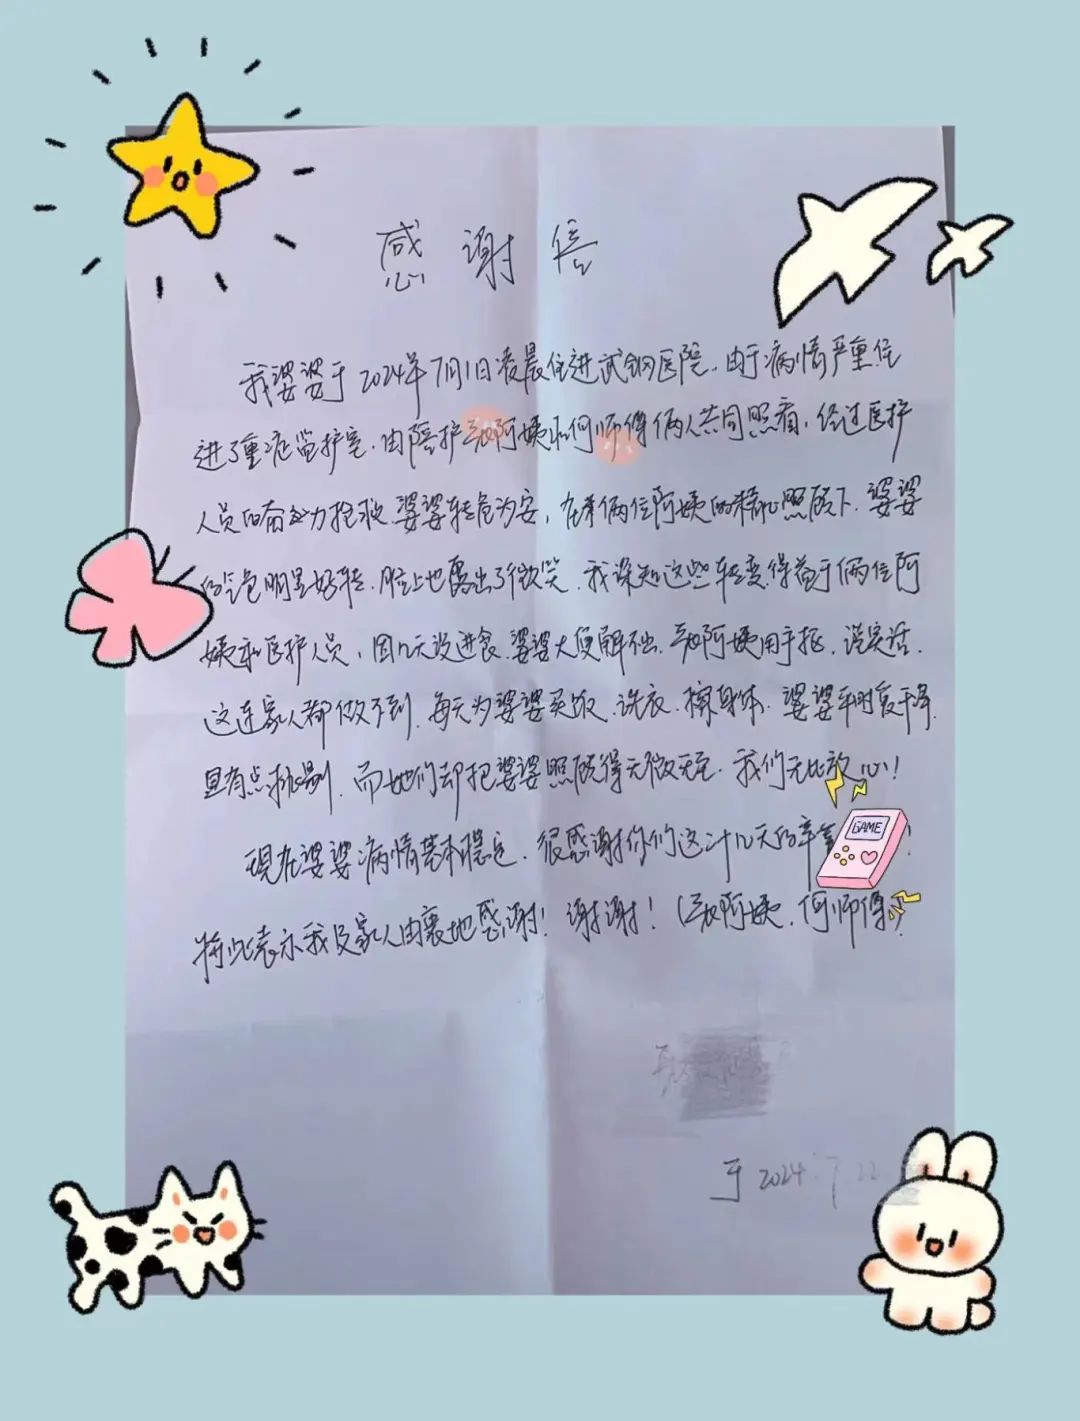 感谢信
我婆婆于2024年7月1日凌晨住进武钢医院.由于病情严重住
进了重症监护室.由陪护 阿姨和何师傅俩人共同照看,经过医护
人员的奋力抢救.婆婆转危为安,在 俩位阿姨的精心照顾下.婆婆
的气色明显好转.脸上也露出了微笑.我深知这些转变.得益于俩位阿
姨和医护人员,因几天没进食.婆婆大便解不出. 阿姨用手抠.说实话.
这连家人都做不到.每天为婆婆买饭.洗衣.擦身体.婆婆平时爱干净.
且有点挑剔.而她们却把婆婆照顾得无微不至.我们无比放心!
现在婆婆病情基本稳定.很感谢你们这十几天的辛 !
特此表示我及家人由衷地感谢!谢谢!( 阿姨.何师傅)!
于2024.7.22
GAME